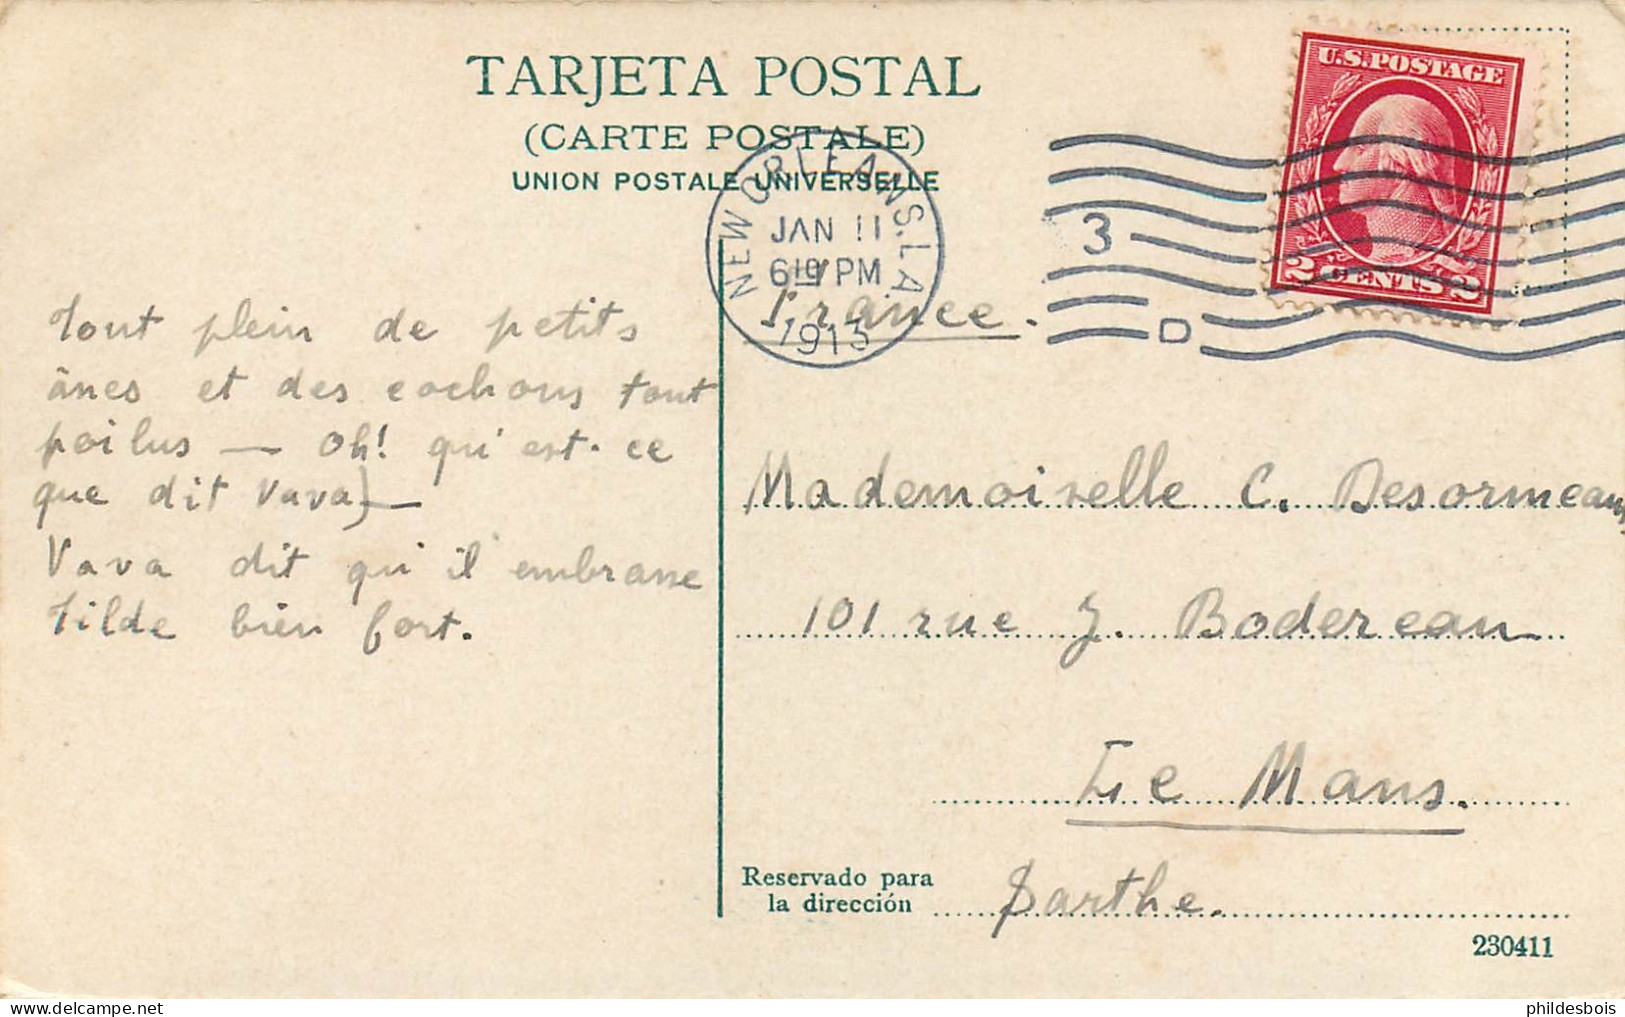 TARJETA POSTAL
(CARTE POSTALE)
UNION POSTALE UNIVERSELLE
U.S. POSTAGE
2 CENTS 2
NEW ORLEANS. LA
JAN 11
6 PM
1913
3
D
France.
Tout plein de petits
ânes et des cochons tout
poilus — Oh! qu'est-ce
que dit Vava) —
Vava dit qu'il embrasse
Tilde bien fort.
Mademoiselle C. Desormeaux
101 rue J. Bodereau
Le Mans.
Sarthe.
Reservado para
la dirección
230411
delcampe.net
phildesbois